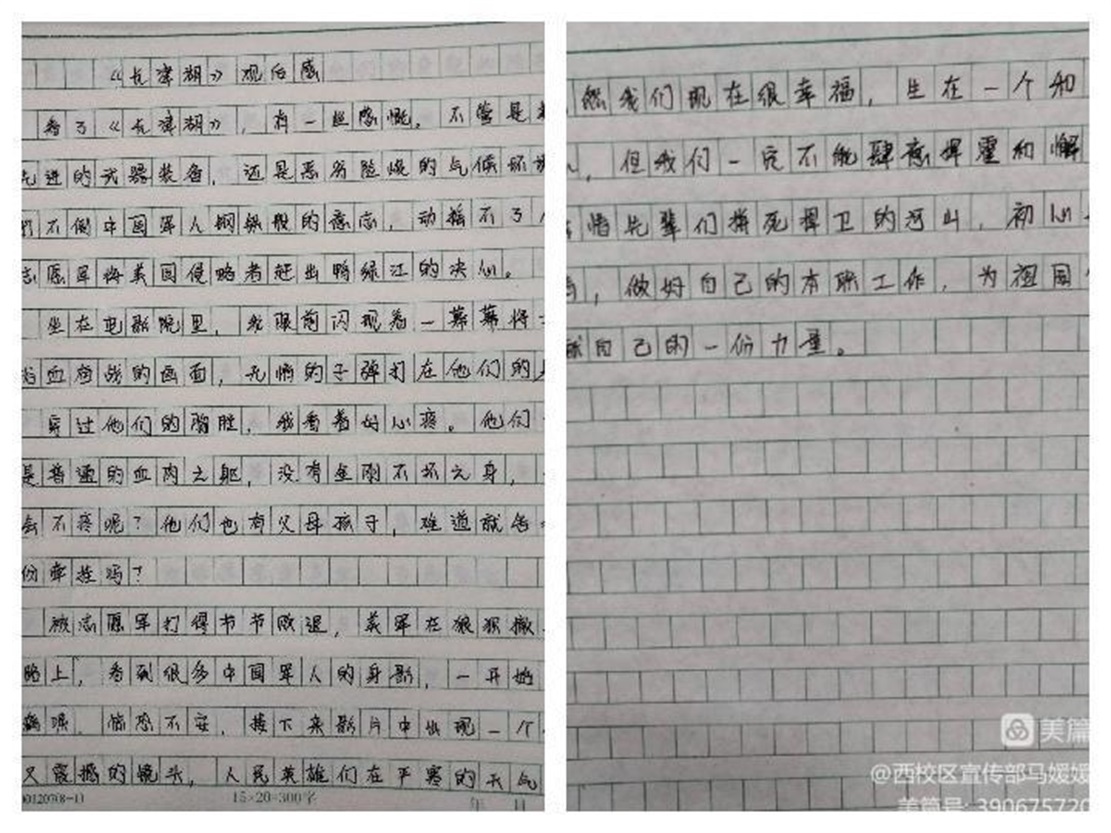 《长津湖》观后感
看了《长津湖》，有一些感慨，不管是
先进的武器装备，还是恶劣险峻的气候环
不倒中国军人钢铁般的意志，动摇不了
志愿军将美国侵略者赶出鸭绿江的决心。
坐在电影院里，我眼前闪现着一幕幕将
浴血奋战的画面，无情的子弹打在他们的
穿过他们的胸膛，我看着好心疼。他们
是普通的血肉之躯，没有金刚不坏之身，
会不疼呢？他们也有父母孩子，难道就舍
份牺牲吗？
被志愿军打得节节败退，美军在狼狈撤
路上，看到很多中国军人的身影，一开始
惊恐不安，接下来影片中出现一个
又震撼的镜头，人民英雄们在严寒的天气
001207(8-1)
15×20=300字
年 月
然我们现在很幸福，生在一个和
，但我们一定不能肆意挥霍和懈
惜先辈们拼死捍卫的河山，初心
，做好自己的本职工作，为祖国
献自己的一份力量。
美篇
@西校区宣传部马媛媛
美篇号: 390675720